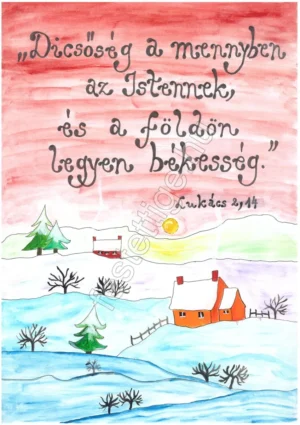 „Dicsőség a mennyben
az Istennek,
és a földön
legyen békesség."
Lukács 2,14